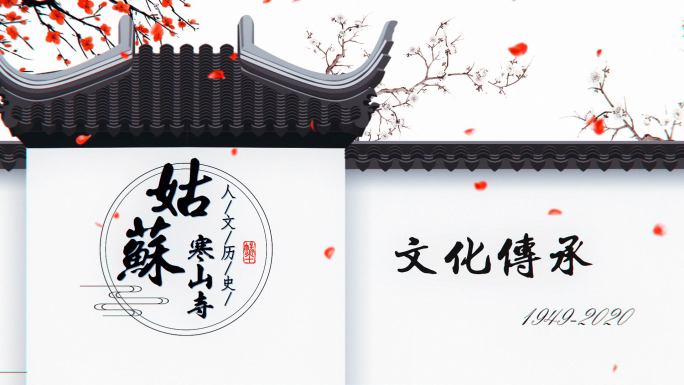 姑蘇
寒山寺
人/文/历/史/
文化傳承
1949-2020